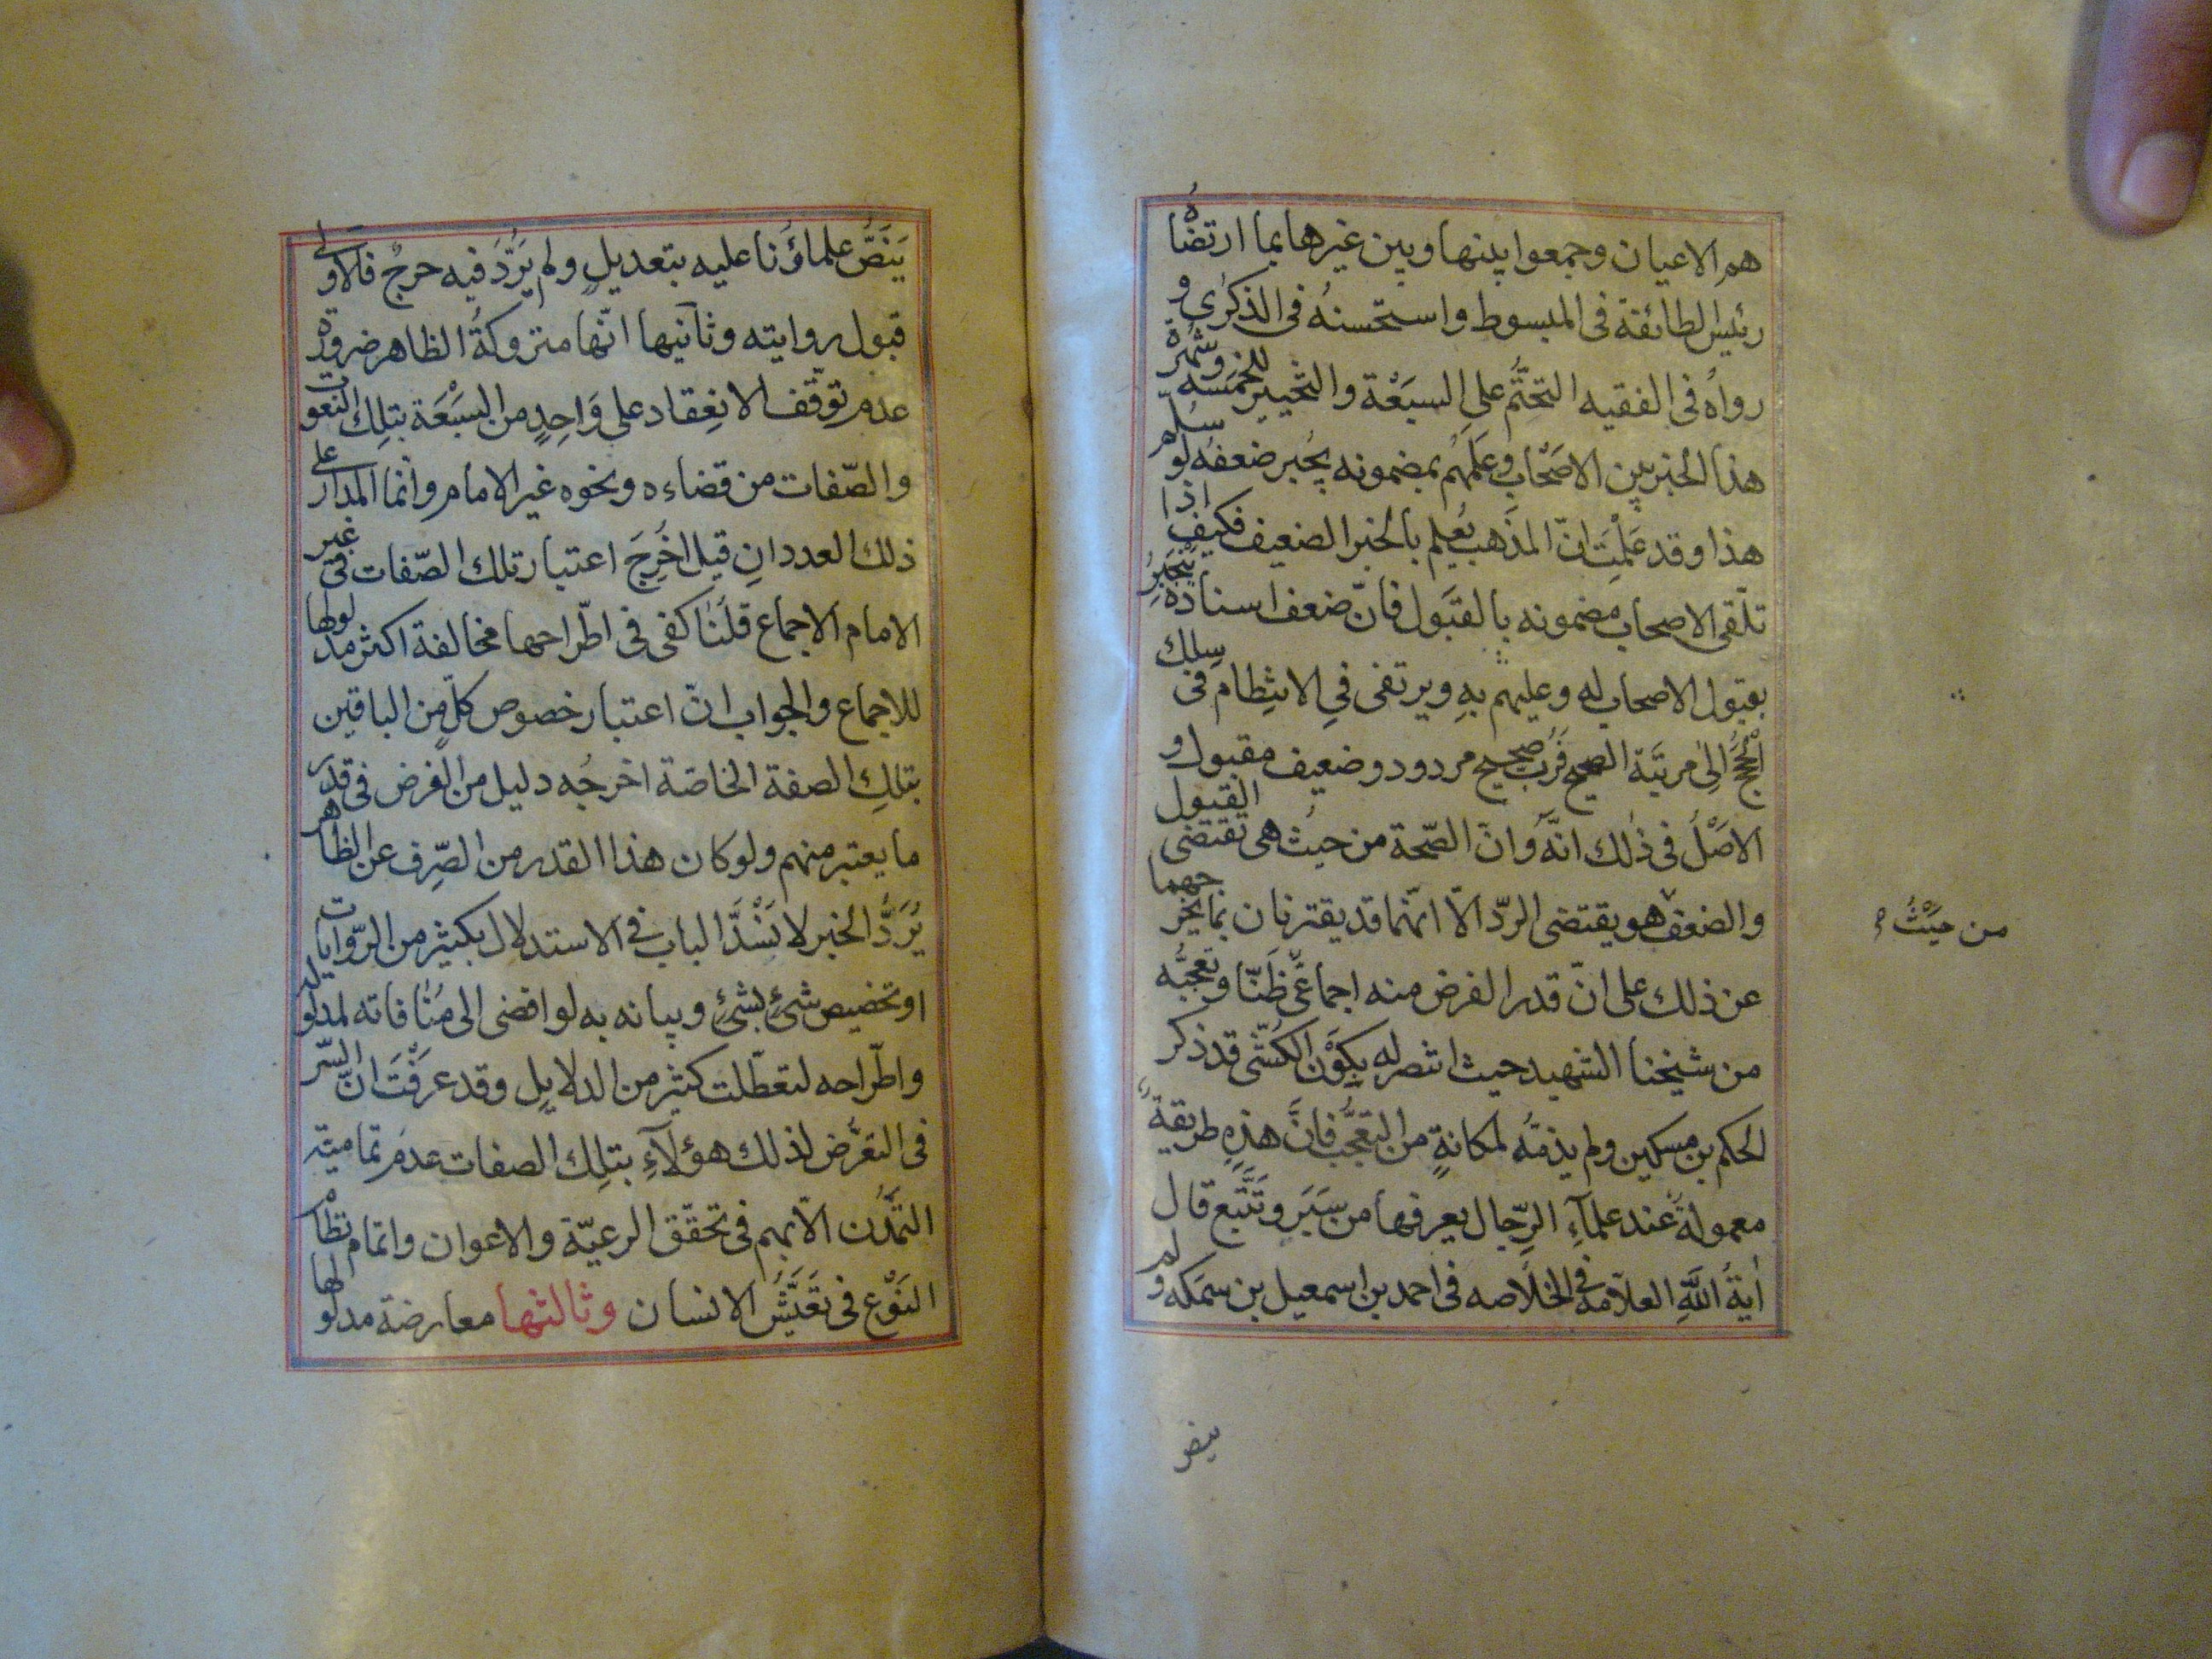 هم الاعيان وجمعوا بينها وبين غيرها بما ارتضاه
رئيس الطائفة فى المبسوط واستحسنه فى الذكرى و
رواه فى الفقيه التحتّم على السبعة والتخيير للخمسة وشهرة
هذا الخبر بين الاصحاب وعملهم بمضمونه يجبر ضعفه لو سلم
هذا وقد علمت انّ المذهب يعلم بالخبر الضعيف فكيف اذا
تلّقى الاصحاب مضمونه بالقبول فانّ ضعف اسناده ينجبر
بقبول الاصحاب له وعليهم به ويرتقى فى الانتظام فى سلك
الحجج الى مرتبة الصحيح فربّ صحيح مردود وضعيف مقبول و
الاصل فى ذلك انّه وانّ الصّحة من حيث هى تقتضى القبول
والضعف هو يقتضى الردّ الّا انّهما قد يقترنان بما يخرجهما
من حيث
عن ذلك على انّ قدر الفرض منه اجماعىّ ظنّا وتعجّبه
من شيخنا الشهيد حيث انتصر له بكون الكشّى قد ذكر
الحكم بن مسكين ولم يذمّه لمكانة من التعجّب فانّ هذه طريقة
معمولة عند علمآء الرّجال يعرفها من سبر وتتبّع قال
أية اللّه العلّامة فى الخلاصه فى احمد بن اسمعيل بن سمكه ولم
ينص
ينصّ علماؤنا عليه بتعديل ولم يردّ فيه جرح فالاولى
قبول روايته وثانيها انّها متروكة الظاهر ضرورة
عدم توقّف الانعقاد على واحد من السبعة بتلك النعوت
والصّفات من قضاءه ونحوه غير الامام وانّما المدار على
ذلك العدد ان قيل اخرج اعتبار تلك الصّفات فى غير
الامام الاجماع قلنا كفى فى اطّراحها مخالفة اكثر مدلولها
للاجماع والجواب انّ اعتبار خصوص كلّ من الباقين
بتلك الصفة الخاصّة اخرجه دليل من الفرض فى قدر
ما يعتبر منهم ولو كان هذا القدر من الصّرف عن الظاهر
يردّ الخبر لانسدّ الباب فى الاستدلال بكثير من الرّوايات
او تخصيص شئ بشئ وبيانه به لو افضى الى منافاته لمدلوله
واطّراحه لتعطّلت كثير من الدلايل وقد عرفت انّ السّر
فى التعرّض لذلك هؤلآء بتلك الصفات عدم تماميّة
التمدّن الّا بهم فى تحقّق الرعيّة والاعوان واتمام نظام
النوع فى تعيّش الانسان وثالثها معارضة مدلولها